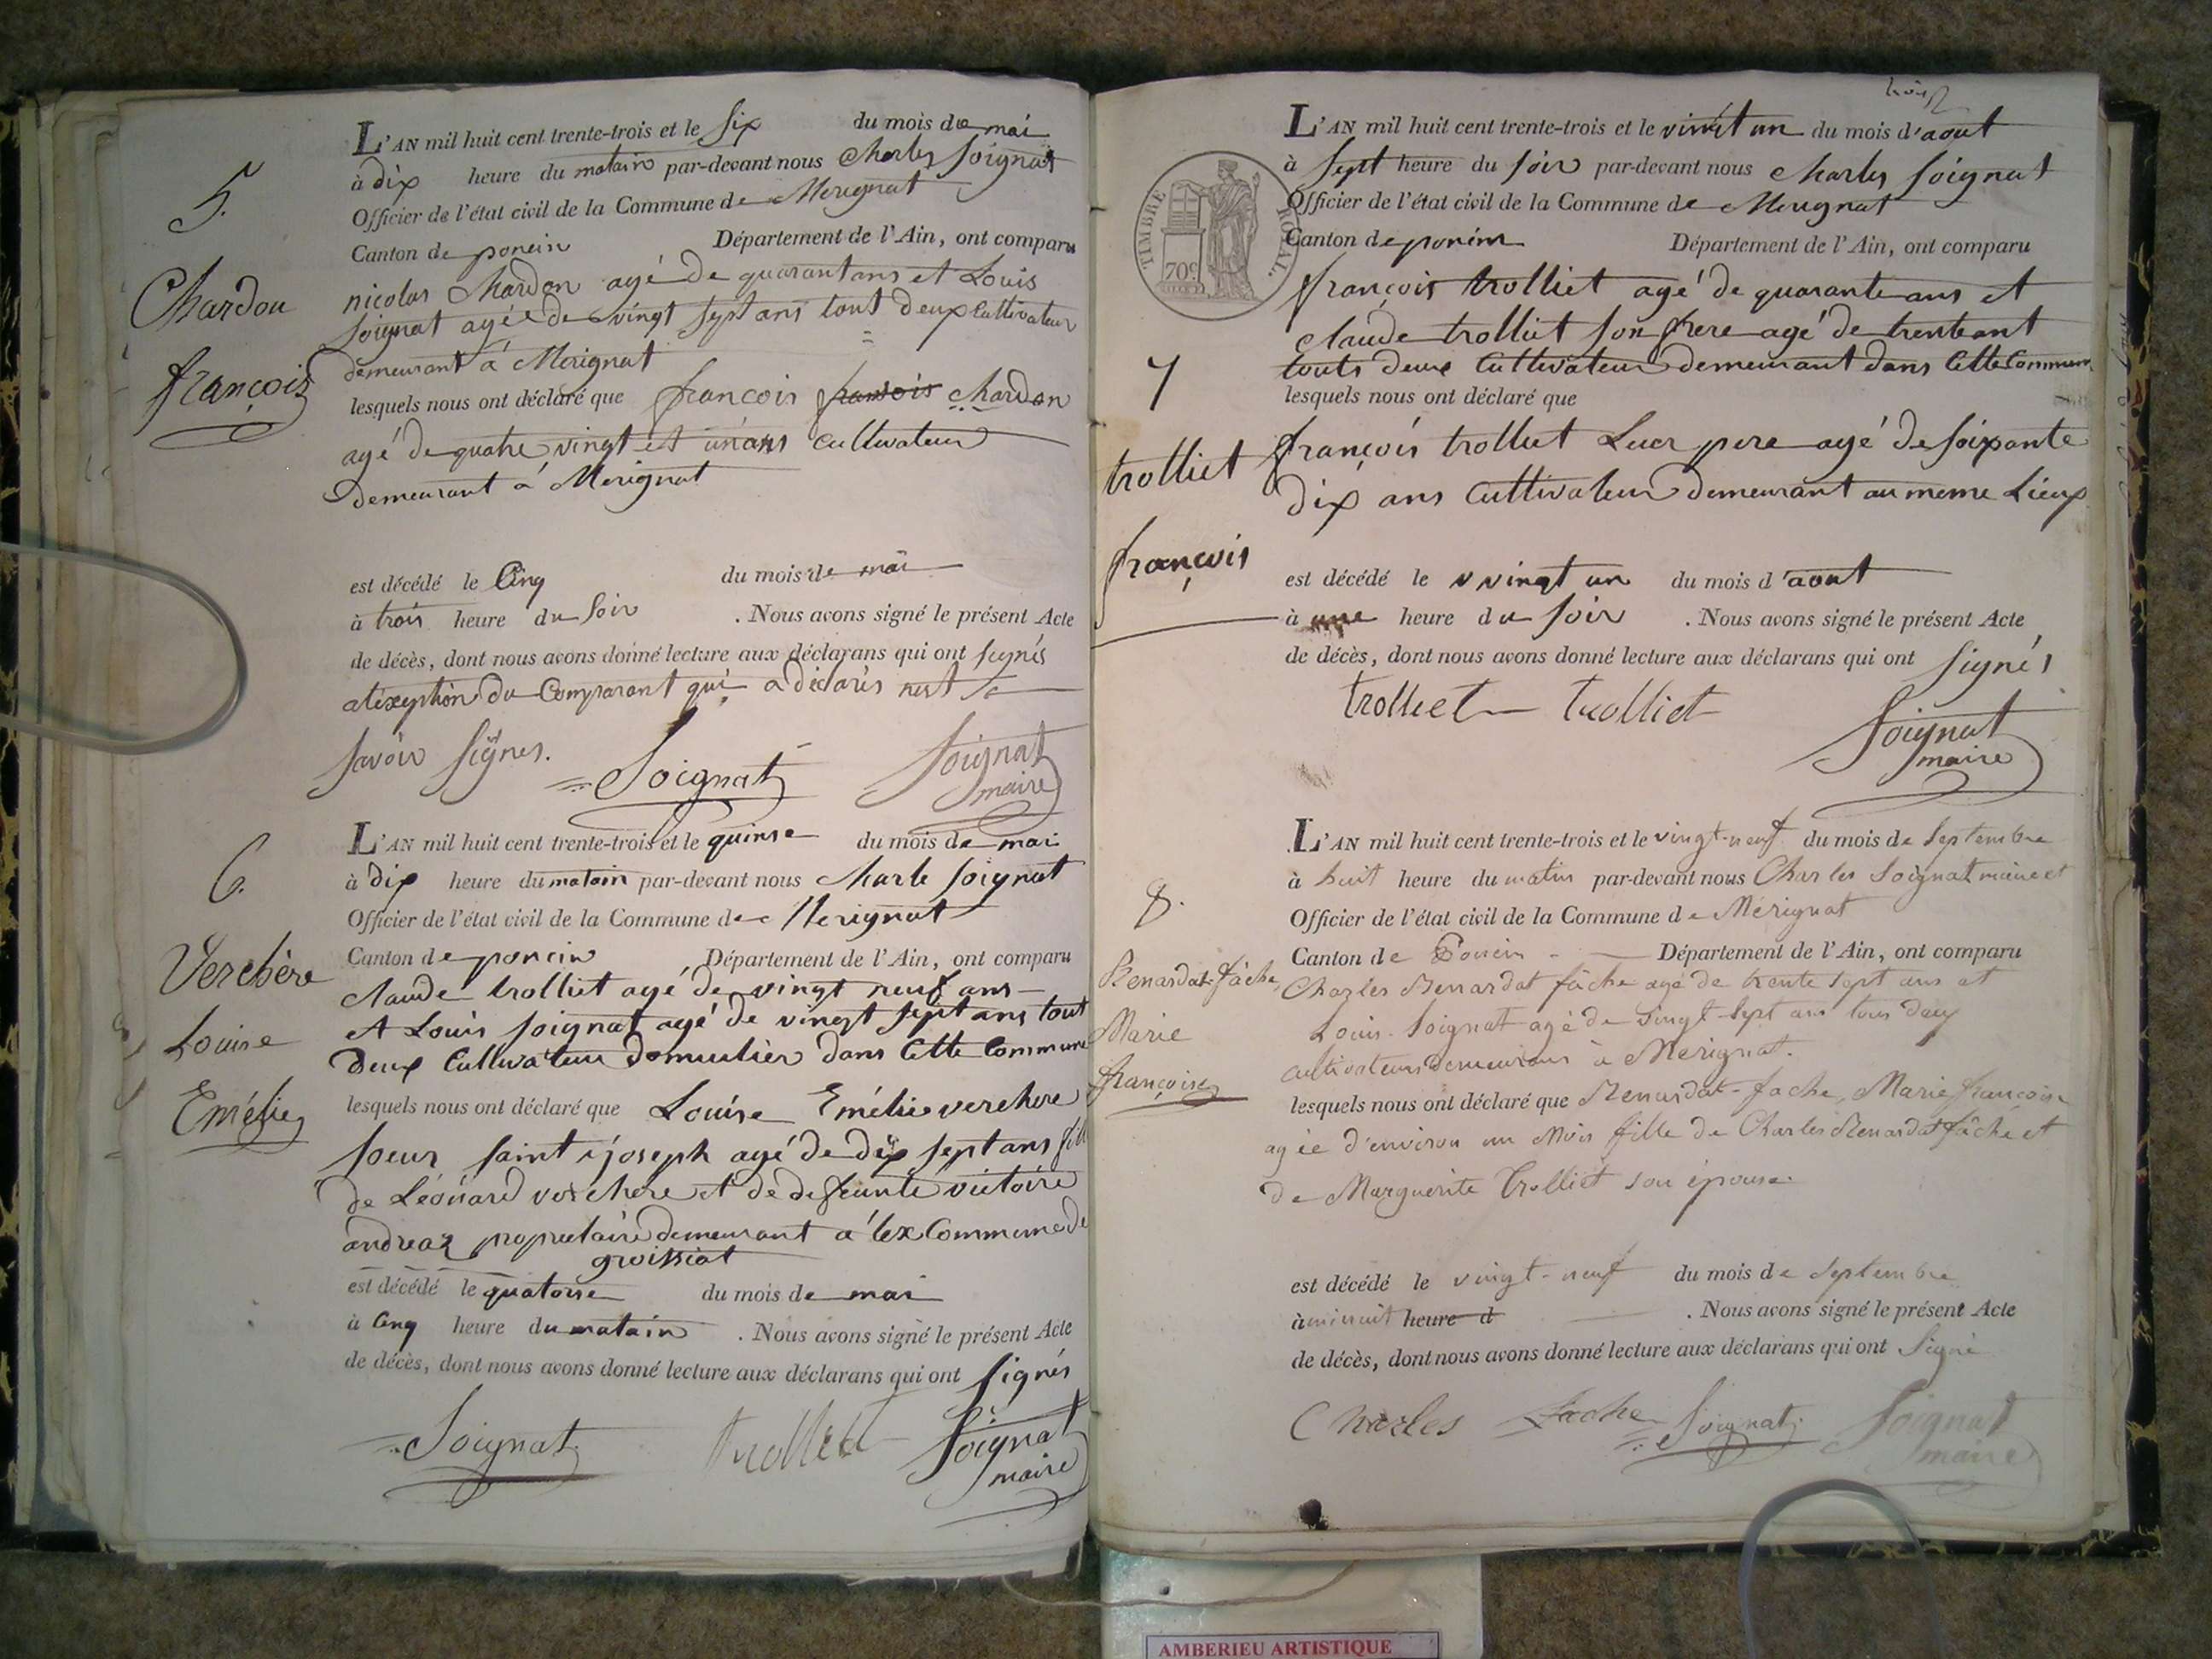 5.
Chardon
françois
L'AN mil huit cent trente-trois et le six du mois de mai
à dix heure du matain par-devant nous Charles Soignat
Officier de l'état civil de la Commune de Merignat
Canton de poncin Département de l'Ain, ont comparu
nicolas Chardon agé de quarant ans et Louis
Soignat agée de vingt sept ans tout deux Cultivateur
demeurant a Merignat
lesquels nous ont déclaré que françois françois chardon
agé de quatre vingt et un ans cultivateur
demeurant a Merignat
est décédé le Cinq du mois de mai
à trois heure du Soir . Nous avons signé le présent Acte
de décès, dont nous avons donné lecture aux déclarans qui ont signés
a léxeption du Comparant qui a déclarés
Savoir Signes.
Soignat Soignat
maire
6.
Verchère
Louise
Emélie
L'AN mil huit cent trente-trois et le quinse du mois de mai
à dix heure du matain par-devant nous Charle Soignat
Officier de l'état civil de la Commune de Merignat
Canton de poncin Département de l'Ain, ont comparu
Claude trolliet agé de vingt neuf ans
et Louis Soignat agé de vingt sept ans tout
deux Cultivateur domicilier dans Cette Commune
lesquels nous ont déclaré que Louise Emélie verchere
Soeur Saint joseph agé de dix sept ans fille
de Léonard verchere et de deffeunte victoire
andréaz propriétaire demeurant a lex Commune de
groissiat
est décédé le quatorse du mois de mai
à Cinq heure du matain . Nous avons signé le présent Acte
de décès, dont nous avons donné lecture aux déclarans qui ont Signés
Soignat trolliet Soignat
maire
trois
TIMBRE ROYAL.
70c
7
trolliet
françois
L'AN mil huit cent trente-trois et le vingt un du mois d'aout
à Sept heure du soir par-devant nous Charles Soignat
Officier de l'état civil de la Commune de Merignat
Canton de poncin Département de l'Ain, ont comparu
françois trolliet agé de quarante ans et
Claude trolliet son frere agé de trente ant
touts deux Cultivateur demeurant dans Cette Commune
lesquels nous ont déclaré que
françois trolliet Leur pere agé de soixante
dix ans Cultivateur demeurant au meme Lieux
est décédé le vvingt un du mois d'aout
à une heure du soir . Nous avons signé le présent Acte
de décès, dont nous avons donné lecture aux déclarans qui ont Signés
trolliet trolliet
Soignat
maire
8.
Renardat-fâche,
Marie
françoise
L'AN mil huit cent trente-trois et le vingt-neuf du mois de Septembre
à huit heure du matin par-devant nous Charles Soignat maire et
Officier de l'état civil de la Commune de Mérignat
Canton de Poncin Département de l'Ain, ont comparu
Charles Renardat fâche agé de trente sept ans et
Louis Soignat agé de vingt-sept ans tous deux
cultivateurs demeurans à Merignat.
lesquels nous ont déclaré que Renardat-fache, Marie françoise
agée d'environ un Mois fille de Charles Renardat fâche et
de Marguerite Trolliet son épouse
est décédé le vingt-neuf du mois de Septembre
à minuit heure d . Nous avons signé le présent Acte
de décès, dont nous avons donné lecture aux déclarans qui ont Signé
Charles fache Soignat Soignat
maire
AMBERIEU ARTISTIQUE